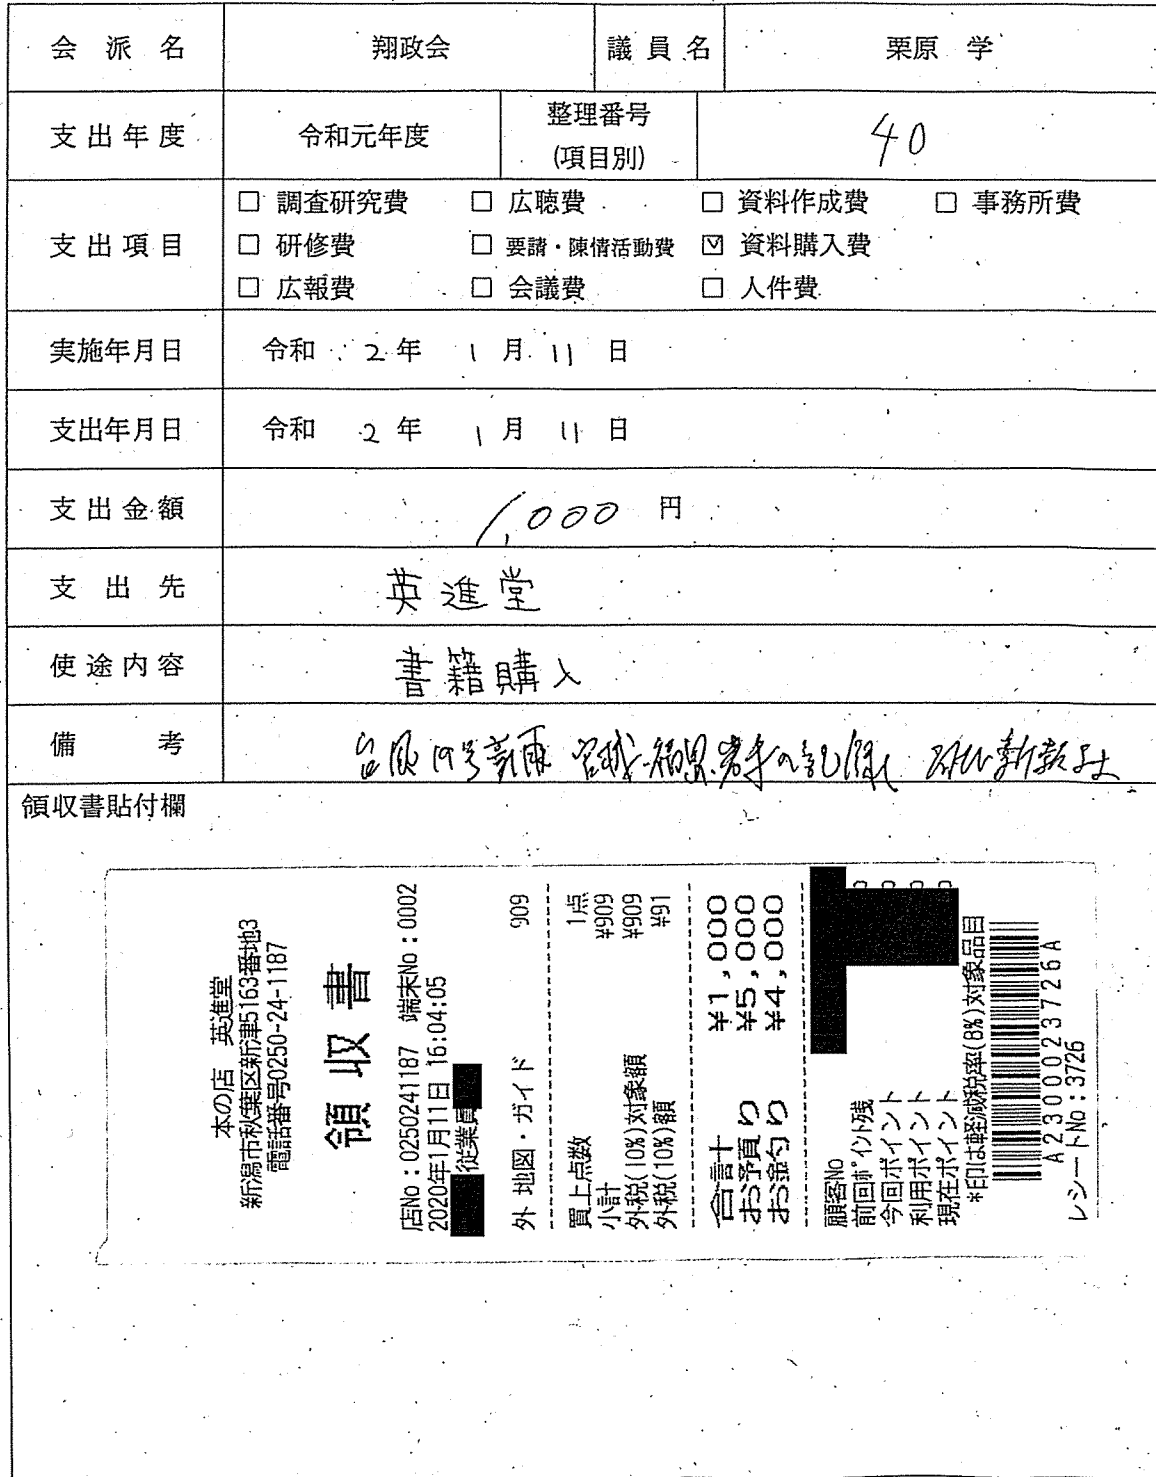 会派名 翔政会 議員名 栗原 学
支出年度 令和元年度 整理番号(項目別) 40
支出項目
□ 調査研究費 □ 広聴費 □ 資料作成費 □ 事務所費
□ 研修費 □ 要請・陳情活動費 ☑ 資料購入費
□ 広報費 □ 会議費 □ 人件費
実施年月日 令和 2年 1月 11日
支出年月日 令和 2年 1月 11日
支出金額 1,000 円
支出先 英進堂
使途内容 書籍購入
備考 台風19号豪雨 宮城・福島・岩手の記録
領収書貼付欄
本の店 英進堂
新潟市秋葉区新津5163番地3
電話番号0250-24-1187
領収書
店No:0250241187 端末No:0002
2020年1月11日 16:04:05
従業員
外 地図・ガイド 909
買上点数 1点
小計 ¥909
外税(10%)対象額 ¥909
外税(10%)額 ¥91
合計 ¥1,000
お預り ¥5,000
お釣り ¥4,000
顧客No
前回ポイント残
今回ポイント
利用ポイント
現在ポイント
*印は軽減税率(8%)対象品目
A2300023726A
レシートNo:3726